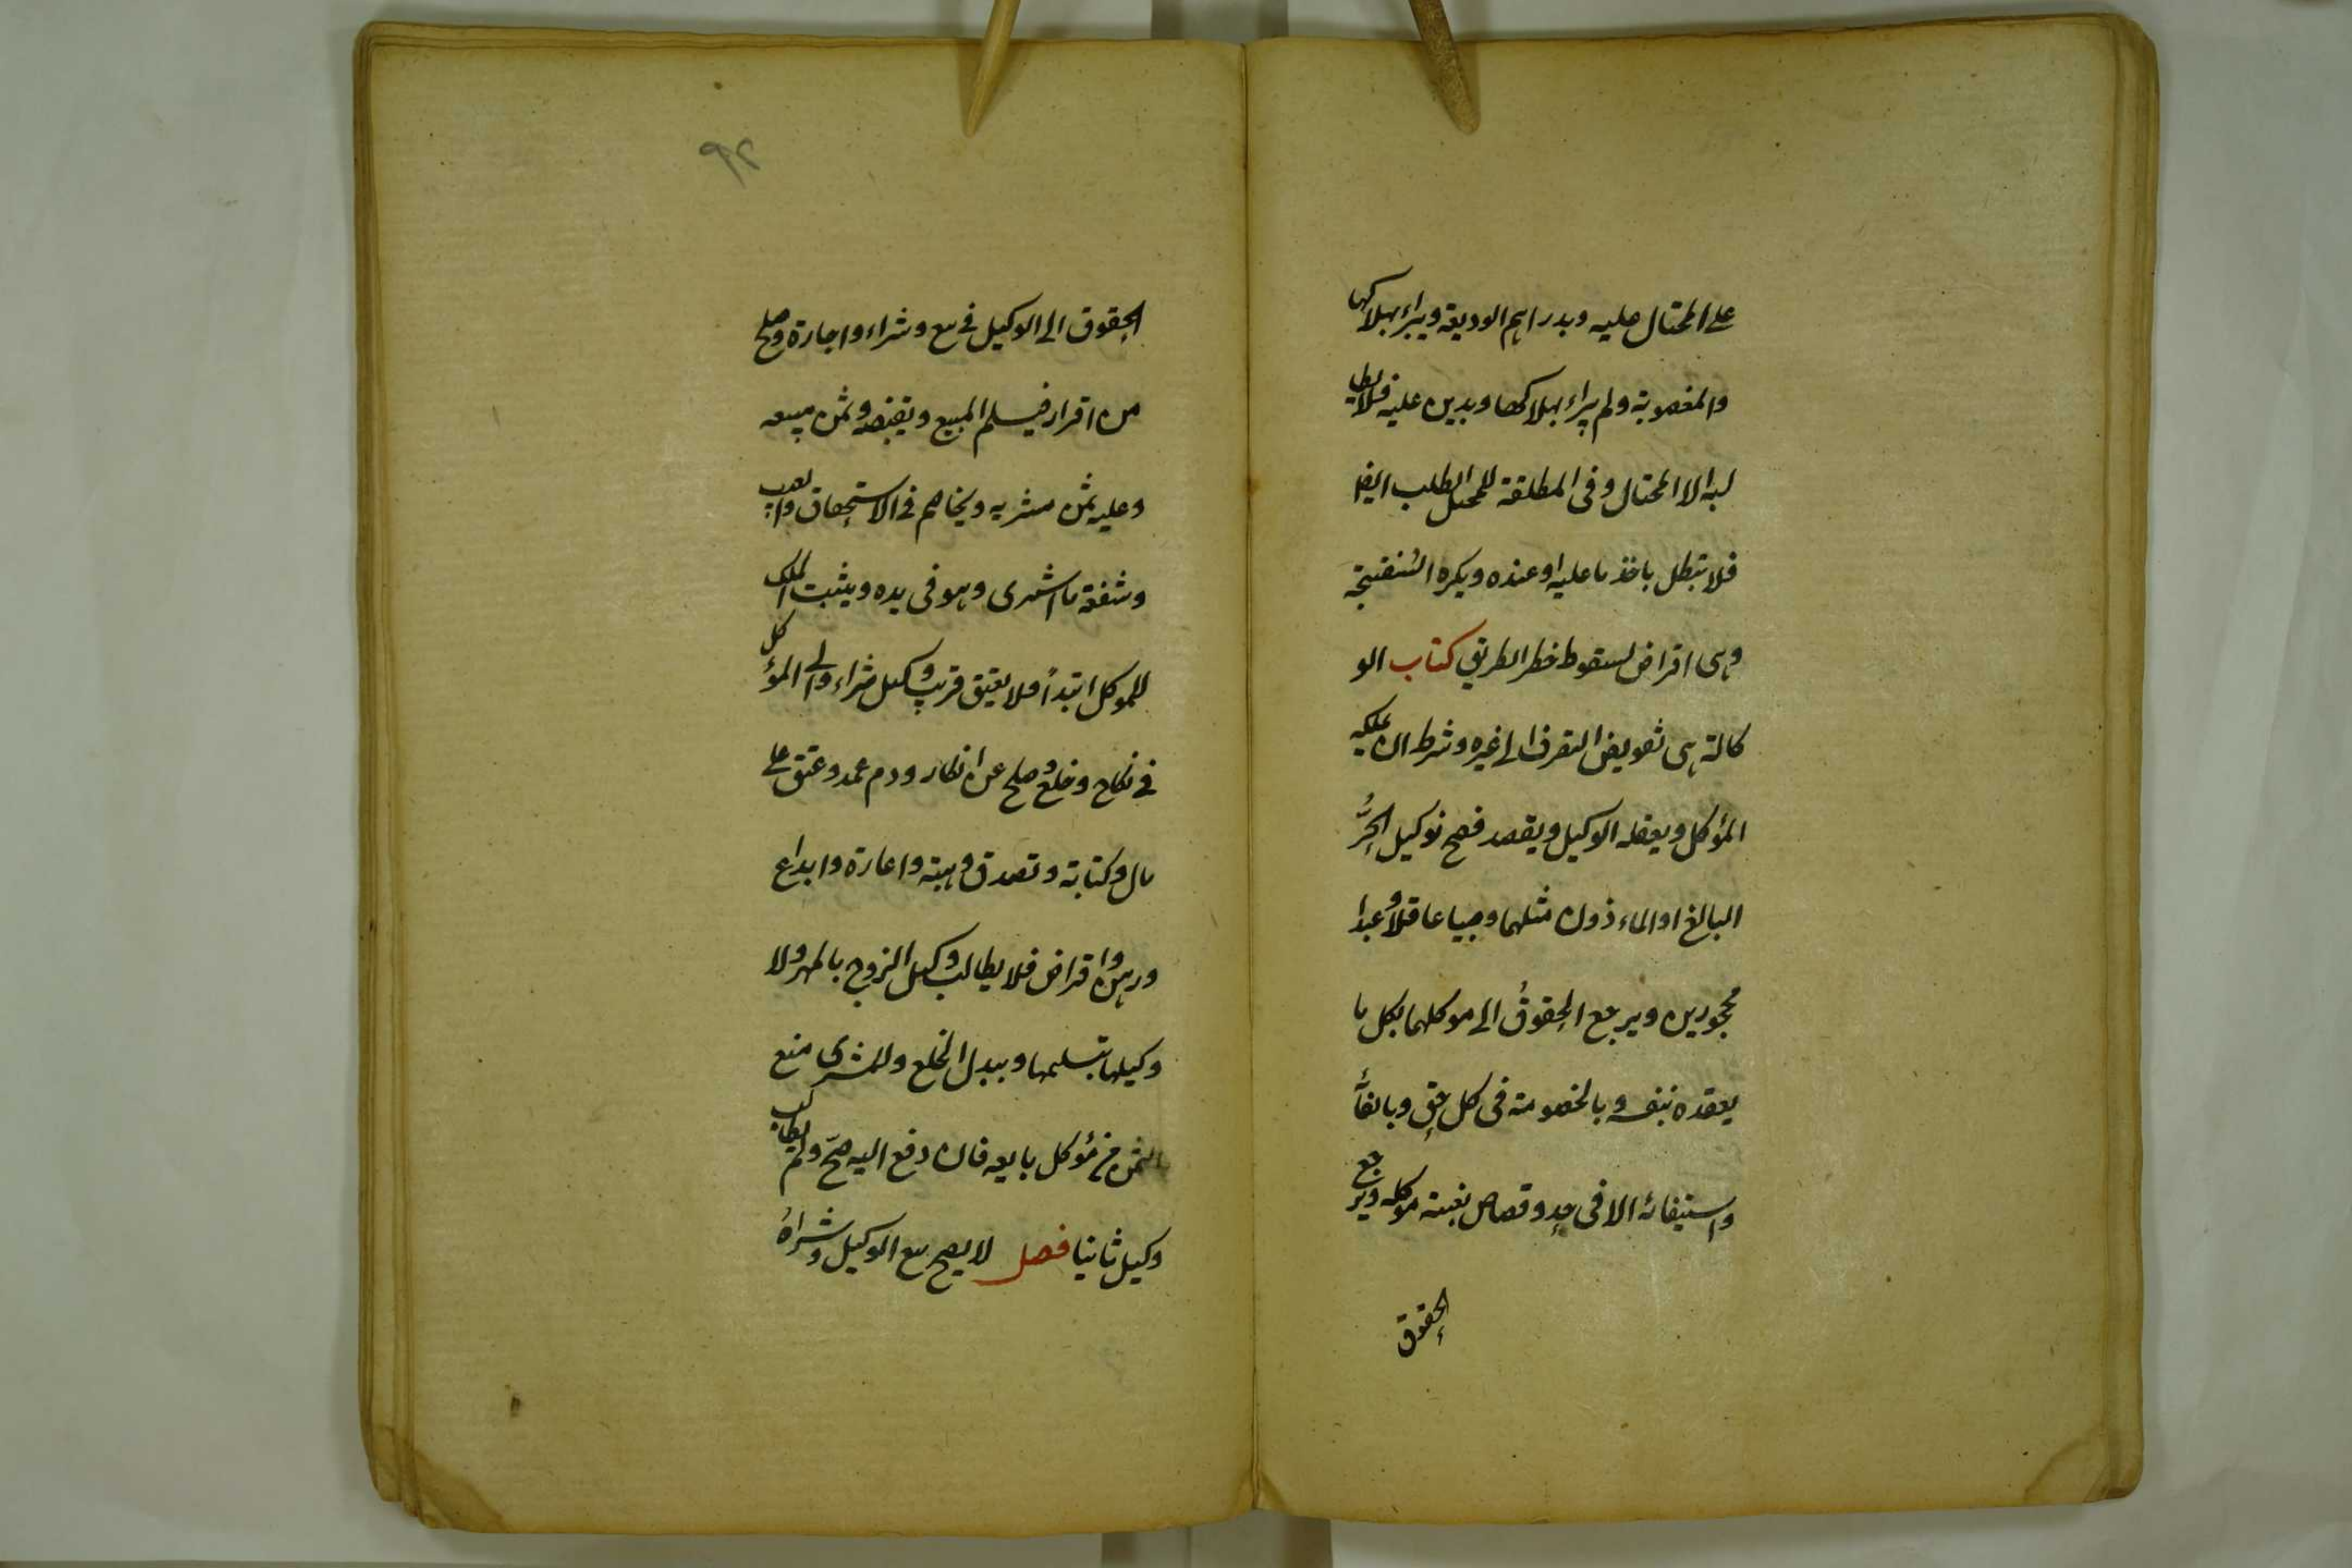 على المحتال عليه وبدراهم الوديعة ويبراء بهلاكها
والمغصوبة ولم يبراء بهلاكها وبدين عليه فلا يطا
لبه الا المحتال وفى المطلقة للمحيل الطلب ايضا
فلا تبطل باخذ ما عليه او عنده ويكره السُفتجة
وهى اقراض لسقوط خطر الطريق كتاب الو
كالة هى تفويض التصرف الى غيره وشرط ان يملكه
المؤكل ويعقله الوكيل ويقصد فصح توكيل الحُرُّ
البالغ او الماءذون مثلهما وصبيا عاقلا وعبدا
مُحجورين ويرجع الحقوقُ الى موكلهما بكل ما
يعقده بنفسه وبالخصومة فى كل حق وبايفآء
واستيفائه الا فى حد وقصاص بغيبة موكله ويرجع
الحقوق
٩٢
الحقوق الى الوكيل فى بيع وشراء واجارة وصلح
من اقرار فيسلم المبيع ويقبضه وثمن مبيعه
وعليه ثمن مشريه ويخاصم فى الاستحقاق والعيب
وشفعة ما اشترى وهو فى يده ويثبت الملك
للموكل ابتدأً فلا يعتق قريب وكيل شراء والى المؤكل
فى نكاح وخلع وصلح عن انكار ودم عمد وعتق على
مال وكتابة وتصدق وهبة واعارة وايداع
ورهن واقراض فلا يطالب وكيل الزوج بالمهر ولا
وكيلها بتسليمها وببدل الخلع وللمشترى منع
الثمن من مؤكل بايعه فان دفع اليه صحّ ولم يطالب
وكيل ثانيا فصل لا يصح بيع الوكيل وشراهُ